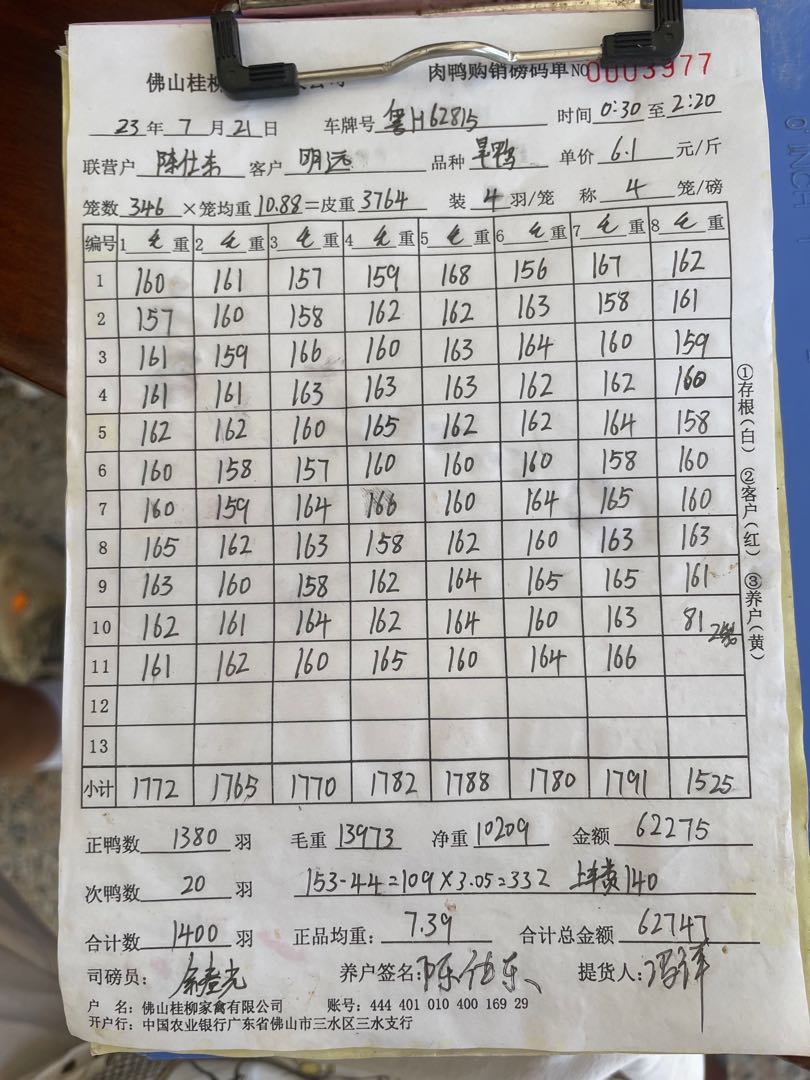 佛山桂柳
肉鸭购销磅码单 NO 0003977
23年7月21日 车牌号 粤H62815 时间 0:30 至 2:20
联营户 陈仕东 客户 明远 品种 旱鸭 单价 6.1 元/斤
笼数 346 ×笼均重 10.88 =皮重 3764 装 4 羽/笼 称 4 笼/磅
编号 1 毛 重 2 毛 重 3 毛 重 4 毛 重 5 毛 重 6 毛 重 7 毛 重 8 毛 重
1 160 161 157 159 168 156 167 162
2 157 160 158 162 162 163 158 161
3 161 159 166 160 163 164 160 159
4 161 161 163 163 163 162 162 160
5 162 162 160 165 162 162 164 158
6 160 158 157 160 160 160 158 160
7 160 159 164 166 160 164 165 160
8 165 162 163 158 162 160 163 163
9 163 160 158 162 164 165 165 161
10 162 161 164 162 164 160 163 81
11 161 162 160 165 160 164 166
12
13
小计 1772 1765 1770 1782 1788 1780 1791 1525
①存根(白) ②客户(红) ③养户(黄)
正鸭数 1380 羽 毛重 13973 净重 10209 金额 62275
次鸭数 20 羽 153-44=109×3.05=332 上车费140
合计数 1400 羽 正品均重: 7.39 合计总金额 62747
司磅员: 养户签名: 陈仕东 提货人:
户 名: 佛山桂柳家禽有限公司 账号: 444 401 010 400 169 29
开户行: 中国农业银行广东省佛山市三水区三水支行